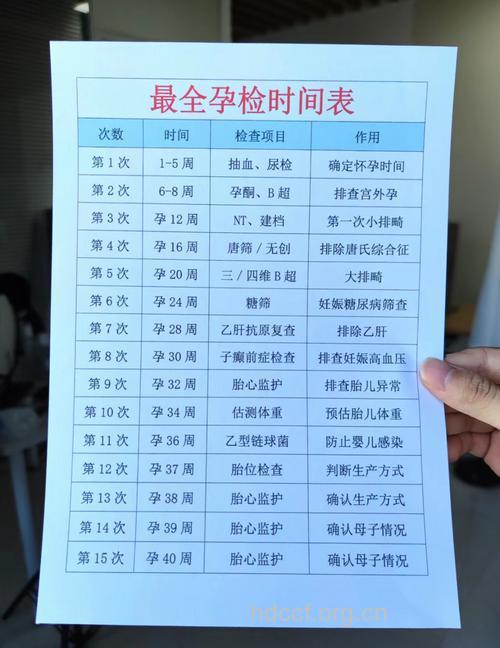 最全孕检时间表
次数 时间 检查项目 作用
第 1 次 1-5 周 抽血、尿检 确定怀孕时间
第 2 次 6-8 周 孕酮、B 超 排查宫外孕
第 3 次 孕 12 周 NT、建档 第一次小排畸
第 4 次 孕 16 周 唐筛 / 无创 排除唐氏综合征
第 5 次 孕 20 周 三 / 四维 B 超 大排畸
第 6 次 孕 24 周 糖筛 妊娠糖尿病筛查
第 7 次 孕 28 周 乙肝抗原复查 排除乙肝
第 8 次 孕 30 周 子癫前症检查 排查妊娠高血压
第 9 次 孕 32 周 胎心监护 排查胎儿异常
第 10 次 孕 34 周 估测体重 预估胎儿体重
第 11 次 孕 36 周 乙型链球菌 防止婴儿感染
第 12 次 孕 37 周 胎位检查 判断生产方式
第 13 次 孕 38 周 胎心监护 确认生产方式
第 14 次 孕 39 周 胎心监护 确认母子情况
第 15 次 孕 40 周 胎心监护 确认母子情况
hdccf.org.cn